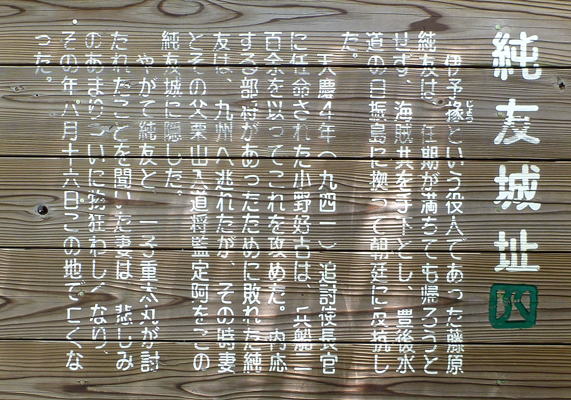 純友城址
四
伊予掾じょうという役人であった藤原
純友は、任期が満ちても帰ろうと
せず、海賊共を手下とし、豊後水
道の日振島に拠って朝廷に反抗し
た。
天慶4年(九四一)追討使長官
に任命された小野好古は、兵船二
百余を以ってこれを攻めた。内応
する部将があったために敗れた純
友は、九州へ逃れたが、その時妻
とその父栗山入道将監定阿をこの
純友城に隠した。
やがて純友と、一子重太丸が討
たれたことを聞いた妻は、悲しみ
のあまりついに物狂わしくなり、
その年八月十六日この地で亡くな
った。